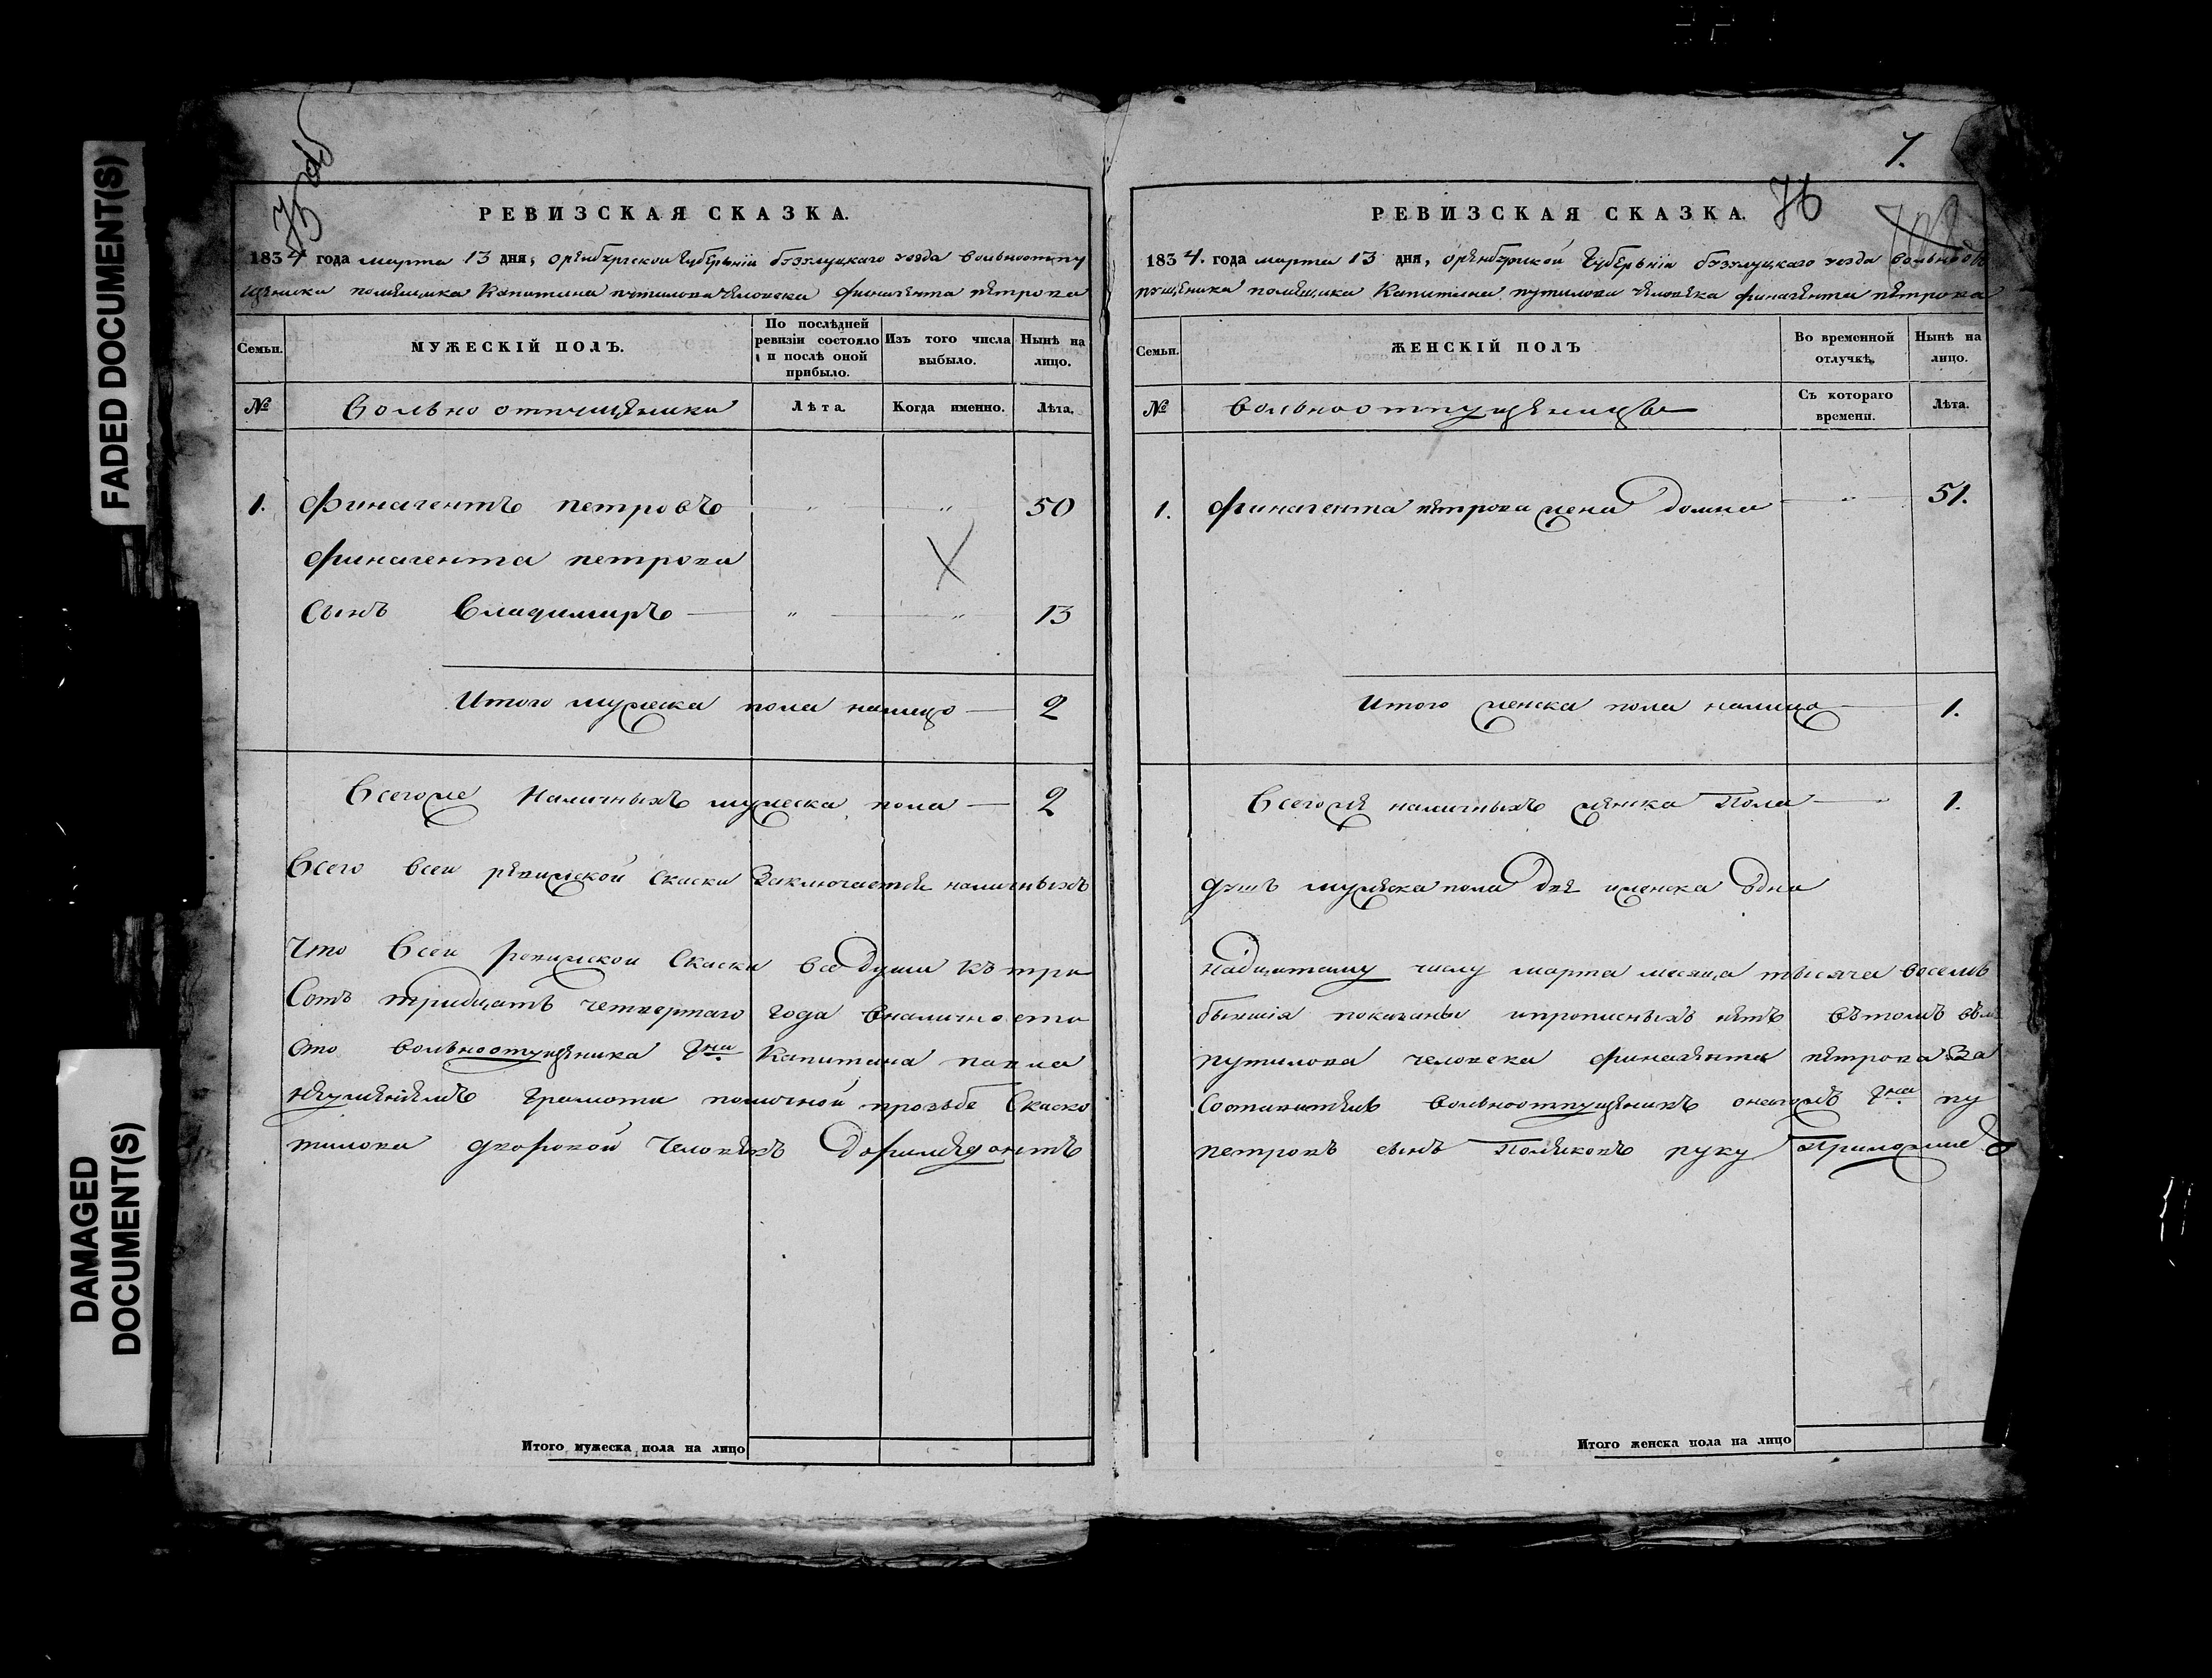 FADED DOCUMENT(S)
DAMAGED
DOCUMENT(S)
РЕВИЗСКАЯ СКАЗКА.
1834 года марта 13 дня, оренбургской губерьніи бузулуцкаго уезда вольноотпу
щеника помещика Капитана путилова человека финагента петрова
Семьи.
МУЖЕСКІЙ ПОЛЪ.
По послѣдней ревизіи состояло и послѣ оной прибыло.
Изъ того числа выбыло.
Нынѣ на лицо.
№
Вольно отпущеники
Лѣта.
Когда именно.
Лѣта.
1. финагентъ петровъ 50
финагента петрова
сынъ Владимиръ 13
Итого мужеска пола налицо 2
Всегоже Наличныхъ мужеска пола 2
Всего всеи ревижской скаски Заключается наличныхъ
что Всеи ревижской Скаски все души къ три
Сотъ тридцать четвертаго года вналичности
сто вольноотущеника Гна Капитана павла
неумениемъ грамоти поличной прозьбе Скаско
тилова дворовой человекъ Доримедонтъ
Итого мужеска пола на лицо
7.
76
РЕВИЗСКАЯ СКАЗКА.
1834. года марта 13 дня, оренбургской Губерьніи бузулуцкаго уезда вольноот
пущеника помещика Капитана путилова человека финагента петрова
Семьи.
ЖЕНСКІЙ ПОЛЪ
Во временной отлучкѣ.
Нынѣ на лицо.
№
вольноотпущеницы
Съ котораго времени.
Лѣта.
1. финагента петрова жена Домна 51.
Итого женска пола налицо 1.
Всегоже наличныхъ женска Пола 1.
душъ мужеска пола две иженска одна
надцатому числу марта месяца тысяча восемь
бывшія показаны ипрописныхъ нетъ вътомъ
путилова человека финагента петрова За
Соствителъ вольноотпущеникъ онагожъ Гна пу
петровъ сынъ Поляковъ руку Приложилъ
Итого женска пола на лицо